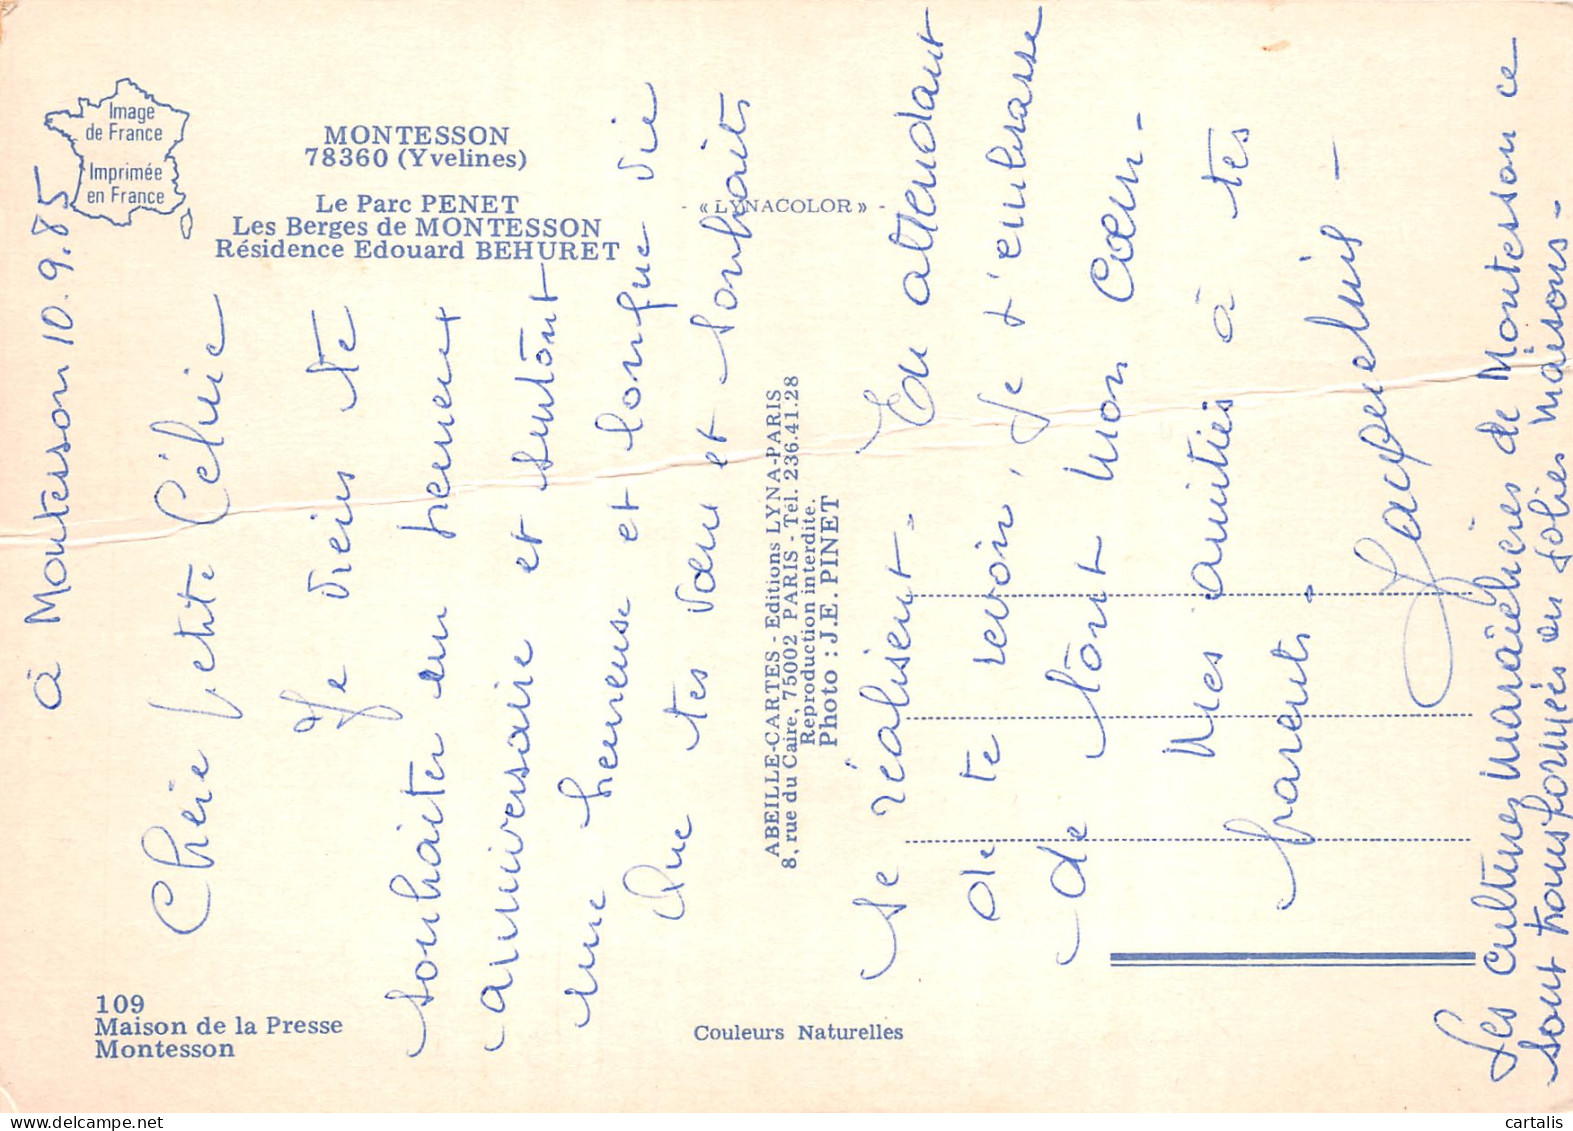 Image
de France
Imprimée
en France
MONTESSON
78360 (Yvelines)
Le Parc PENET
Les Berges de MONTESSON
Résidence Edouard BEHURET
- « LYNACOLOR » -
ABEILLE-CARTES - Editions LYNA-PARIS
8, rue du Caire, 75002 PARIS - Tél. 236.41.28
Reproduction interdite.
Photo : J.E. PINET
109
Maison de la Presse
Montesson
Couleurs Naturelles
à Montesson 10.9.85
Chère petite Célvie
Je viens te
souhaiter un heureux
anniversaire et surtout
une heureuse et longue vie
Que tes vœu et souhaits
se réalisent. En attendant
de te revoir, je t'embrasse
de tout mon cœur -
Mes amitiés à tes
parents.
Jacqueluis -
Les cultures maraîchères de Montesson ce
sont transformées en jolies maisons -
cartalis
www.delcampe.net